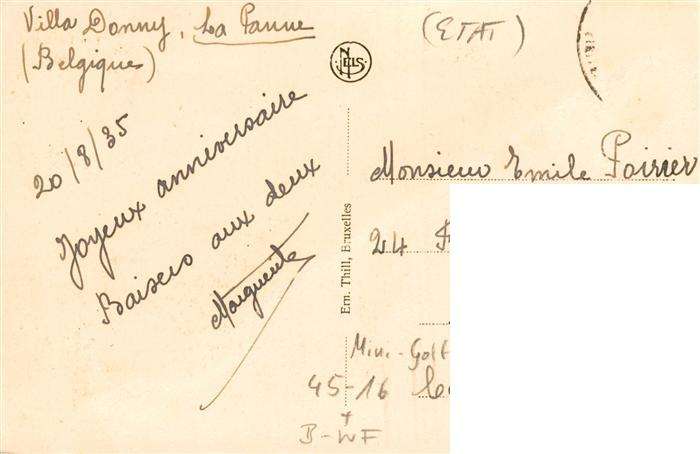 Villa Donny, La Panne
(Belgique)
20/8/35
Joyeux anniversaire
Baisers aux deux
Marguerite
NELS
Ern. Thill, Bruxelles
(ETAT)
Monsieur Emile Poirier
24
Mini-Golf
45-16
B-WF